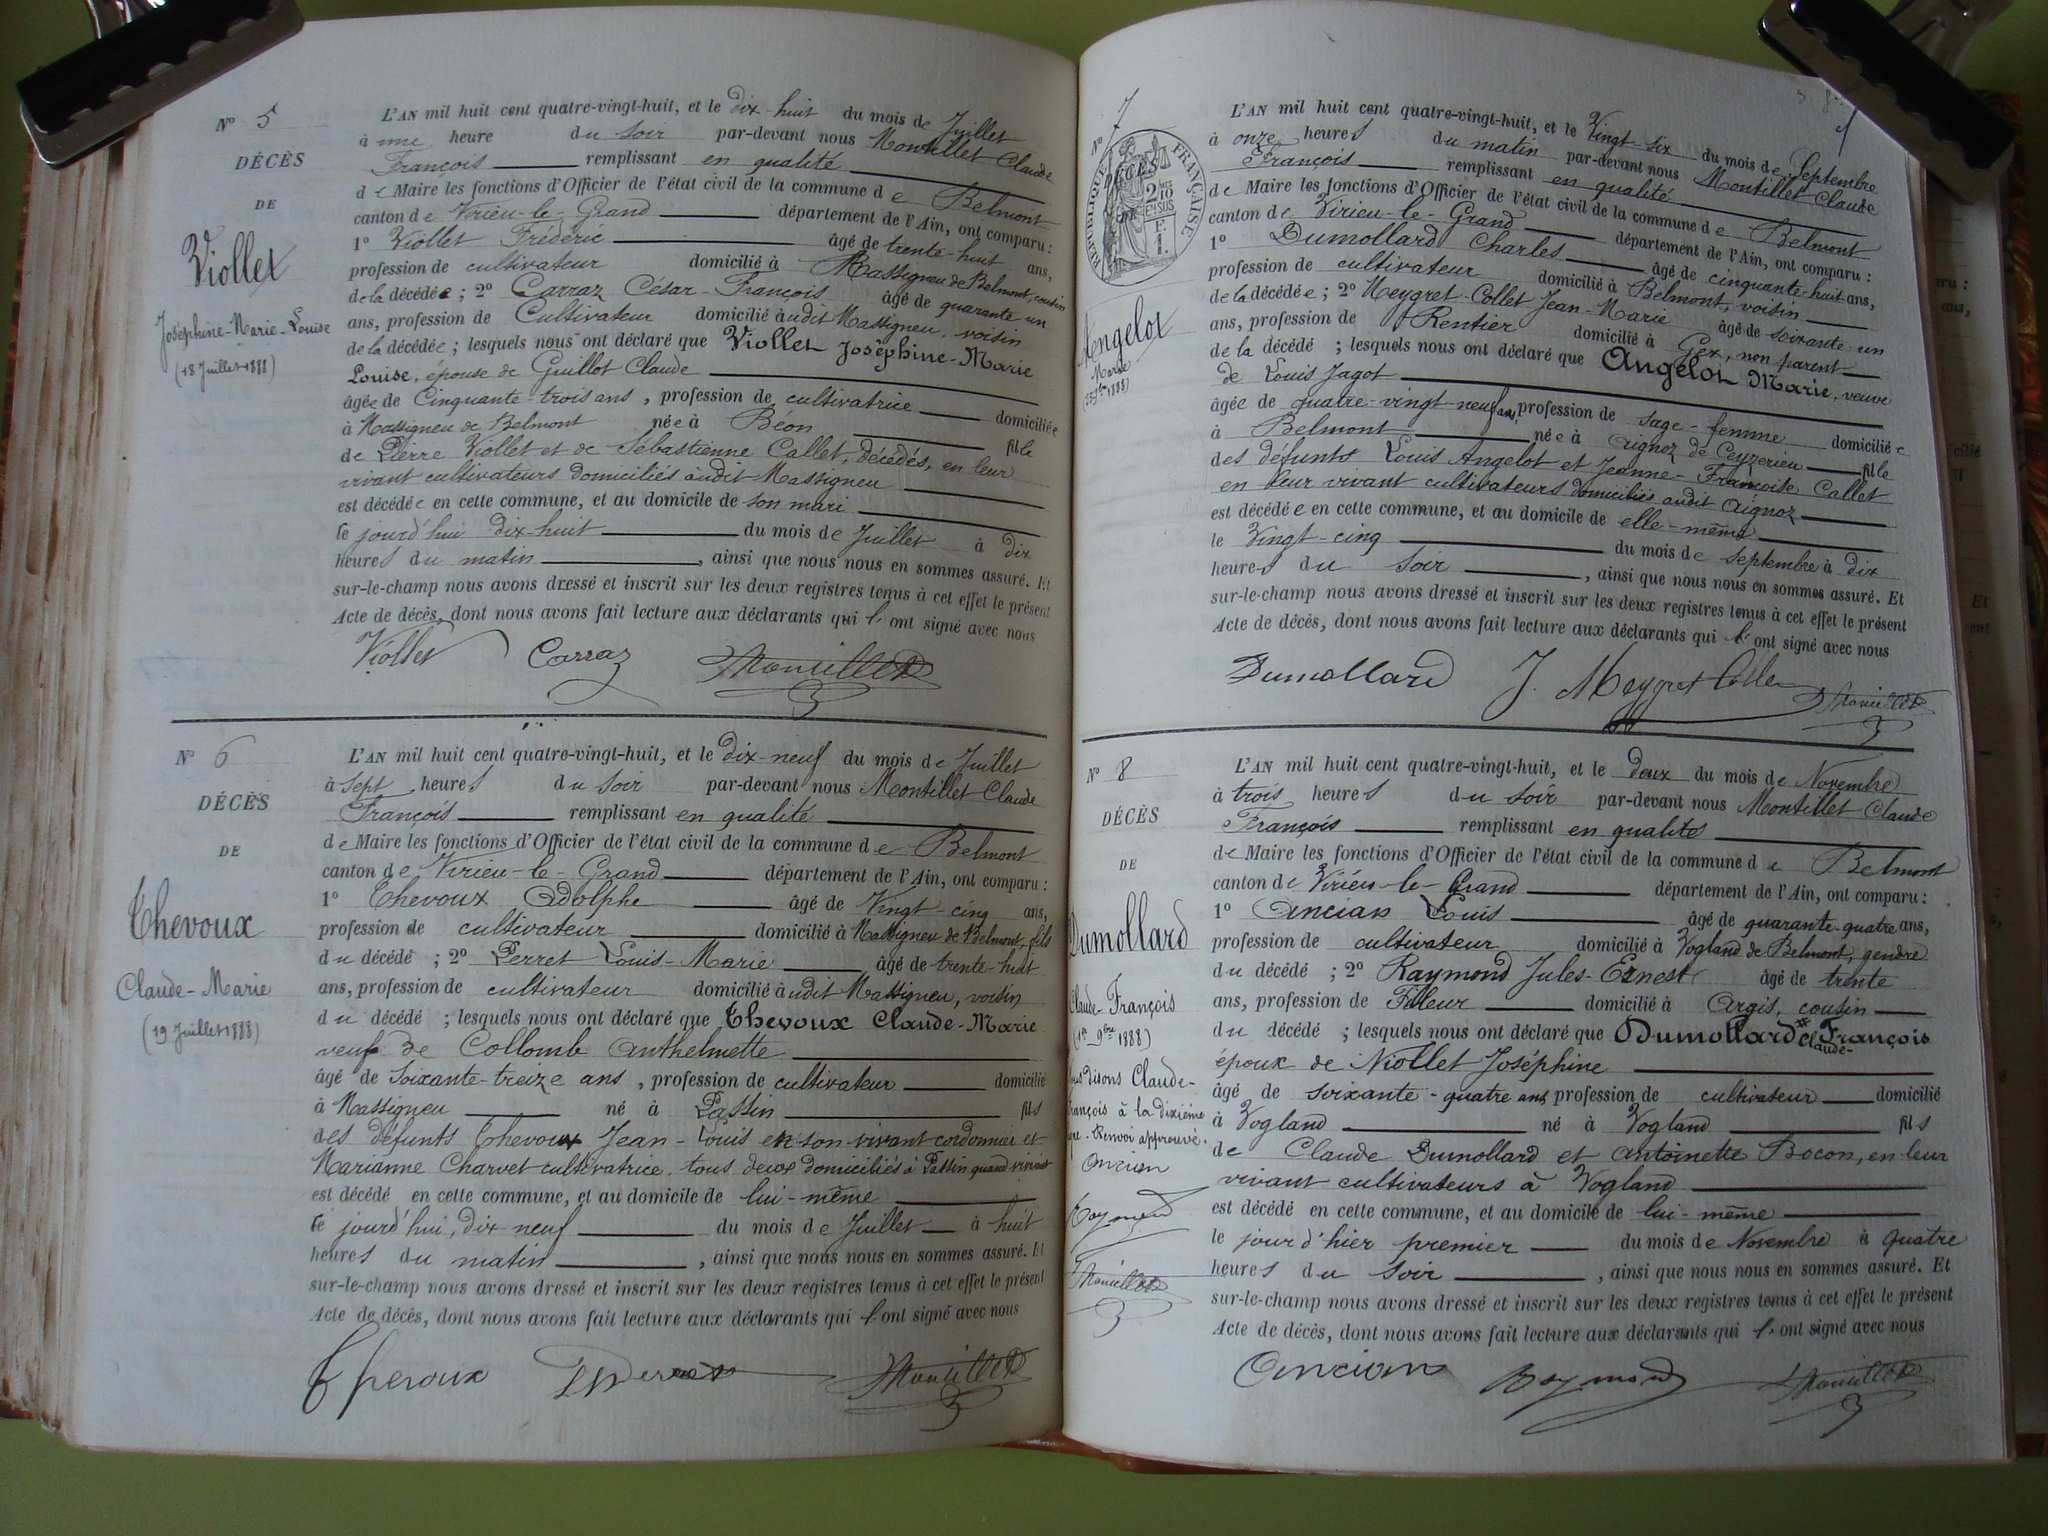 N° 5
DÉCÈS
DE
Viollet
Joséphine-Marie-Louise
(18 Juillet 1888)
L'AN mil huit cent quatre-vingt-huit, et le dix-huit du mois de Juillet
à une heure du soir par-devant nous Montillet Claude
François remplissant en qualité
de Maire les fonctions d'Officier de l'état civil de la commune de Belmont
canton de Virieu-le-Grand département de l'Ain, ont comparu :
1° Viollet Frédéric âgé de trente-huit ans,
profession de cultivateur domicilié à Massigneu de Belmont, cousin
de la décédée ; 2° Carraz César-François âgé de quarante un
ans, profession de Cultivateur domicilié àudit Massigneu, voisin
de la décédée ; lesquels nous ont déclaré que Viollet Joséphine-Marie
Louise, épouse de Guillot Claude
âgée de Cinquante-trois ans, profession de cultivatrice domiciliée
à Massigneu de Belmont née à Béon fille
de Pierre Viollet et de Sébastienne Callet, décédés, en leur
vivant cultivateurs domiciliés àudit Massigneu
est décédée en cette commune, et au domicile de son mari
le jourd'hui dix-huit du mois de Juillet à dix
heures du matin, ainsi que nous nous en sommes assuré. Et
sur-le-champ nous avons dressé et inscrit sur les deux registres tenus à cet effet le présent
Acte de décès, dont nous avons fait lecture aux déclarants qui l'ont signé avec nous
Viollet Carraz Montillet
N° 6
DÉCÈS
DE
Thevoux
Claude-Marie
(19 Juillet 1888)
L'AN mil huit cent quatre-vingt-huit, et le dix-neuf du mois de Juillet
à sept heures du soir par-devant nous Montillet Claude
François remplissant en qualité
de Maire les fonctions d'Officier de l'état civil de la commune de Belmont
canton de Virieu-le-Grand département de l'Ain, ont comparu :
1° Thevoux Adolphe âgé de Vingt cinq ans,
profession de cultivateur domicilié à Massigneu de Belmont, fils
du décédé ; 2° Perret Louis-Marie âgé de trente-huit
ans, profession de cultivateur domicilié àudit Massigneu, voisin
du décédé ; lesquels nous ont déclaré que Thevoux Claude-Marie
veuf de Collomb Anthelmette
âgé de Soixante-treize ans, profession de cultivateur domicilié
à Massigneu né à Passin fils
des défunts Thevoux Jean-Louis en son vivant cordonnier et
Marianne Charvet cultivatrice tous deux domiciliés à Passin quand vivaient
est décédé en cette commune, et au domicile de lui-même
le jourd'hui, dix-neuf du mois de Juillet à huit
heures du matin, ainsi que nous nous en sommes assuré. Et
sur-le-champ nous avons dressé et inscrit sur les deux registres tenus à cet effet le présent
Acte de décès, dont nous avons fait lecture aux déclarants qui l'ont signé avec nous
Thevoux Perret Montillet
N° 7
DÉCÈS
RÉPUBLIQUE FRANÇAISE
Angelot
Marie
(25 7bre 1888)
L'AN mil huit cent quatre-vingt-huit, et le Vingt-six du mois de Septembre
à onze heures du matin par-devant nous Montillet Claude
François remplissant en qualité
de Maire les fonctions d'Officier de l'état civil de la commune de Belmont
canton de Virieu-le-Grand département de l'Ain, ont comparu :
1° Dumollard Charles âgé de cinquante-huit ans,
profession de cultivateur domicilié à Belmont, voisin
de la décédée ; 2° Meygret-Collet Jean-Marie âgé de soixante-un
ans, profession de Rentier domicilié à Gex, non parent
de la décédé ; lesquels nous ont déclaré que Angelot Marie, veuve
de Louis Jagot
âgée de quatre-vingt-neuf ans, profession de sage-femme domiciliée
à Belmont née à Aignoz de Ceyzerieu fille
des défunts Louis Angelot et Jeanne-Françoise Callet
en leur vivant cultivateurs domiciliés audit Aignoz
est décédée en cette commune, et au domicile de elle-même
le Vingt-cinq du mois de septembre à dix
heures du soir, ainsi que nous nous en sommes assuré. Et
sur-le-champ nous avons dressé et inscrit sur les deux registres tenus à cet effet le présent
Acte de décès, dont nous avons fait lecture aux déclarants qui l'ont signé avec nous
Dumollard J. Meygret Collet Montillet
N° 8
DÉCÈS
DE
Dumollard
Claude-François
(1er 9bre 1888)
nous disons Claude-
François à la dixième
Renvoi approuvé.
Ancian
Raymond
Montillet
L'AN mil huit cent quatre-vingt-huit, et le deux du mois de Novembre
à trois heures du soir par-devant nous Montillet Claude
François remplissant en qualité
de Maire les fonctions d'Officier de l'état civil de la commune de Belmont
canton de Virieu-le-Grand département de l'Ain, ont comparu :
1° Ancian Louis âgé de quarante-quatre ans,
profession de cultivateur domicilié à Vogland de Belmont, gendre
du décédé ; 2° Raymond Jules-Ernest âgé de trente
ans, profession de Fileur domicilié à Argis, cousin
du décédé ; lesquels nous ont déclaré que Dumollard Claude-François
époux de Niollet Joséphine
âgé de soixante-quatre ans profession de cultivateur domicilié
à Vogland né à Vogland fils
de Claude Dumollard et Antoinette Bocon, en leur
vivant cultivateurs à Vogland
est décédé en cette commune, et au domicile de lui-même
le jour d'hier premier du mois de Novembre à quatre
heures du soir, ainsi que nous nous en sommes assuré. Et
sur-le-champ nous avons dressé et inscrit sur les deux registres tenus à cet effet le présent
Acte de décès, dont nous avons fait lecture aux déclarants qui l'ont signé avec nous
Ancian Raymond Montillet